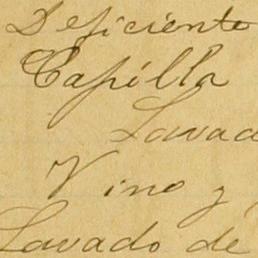 Deficiente
Capilla
Lavad
Vino y
Lavado de